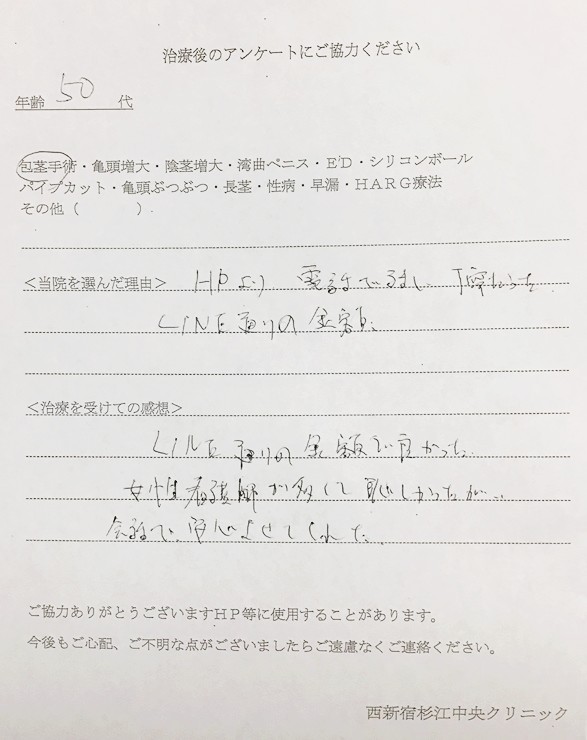 治療後のアンケートにご協力ください
年齢 50 代
包茎手術・亀頭増大・陰茎増大・湾曲ペニス・ED・シリコンボール
パイプカット・亀頭ぶつぶつ・長茎・性病・早漏・HARG療法
その他（　　　）
＜当院を選んだ理由＞ HPより 電話で 丁寧だった
LINE通りの金額。
＜治療を受けての感想＞
LINE通りの金額で良かった。
女性看護師が多くて恥しかったが…
会話で、安心させてくれた。
ご協力ありがとうございますHP等に使用することがあります。
今後もご心配、ご不明な点がございましたらご遠慮なくご連絡ください。
西新宿杉江中央クリニック